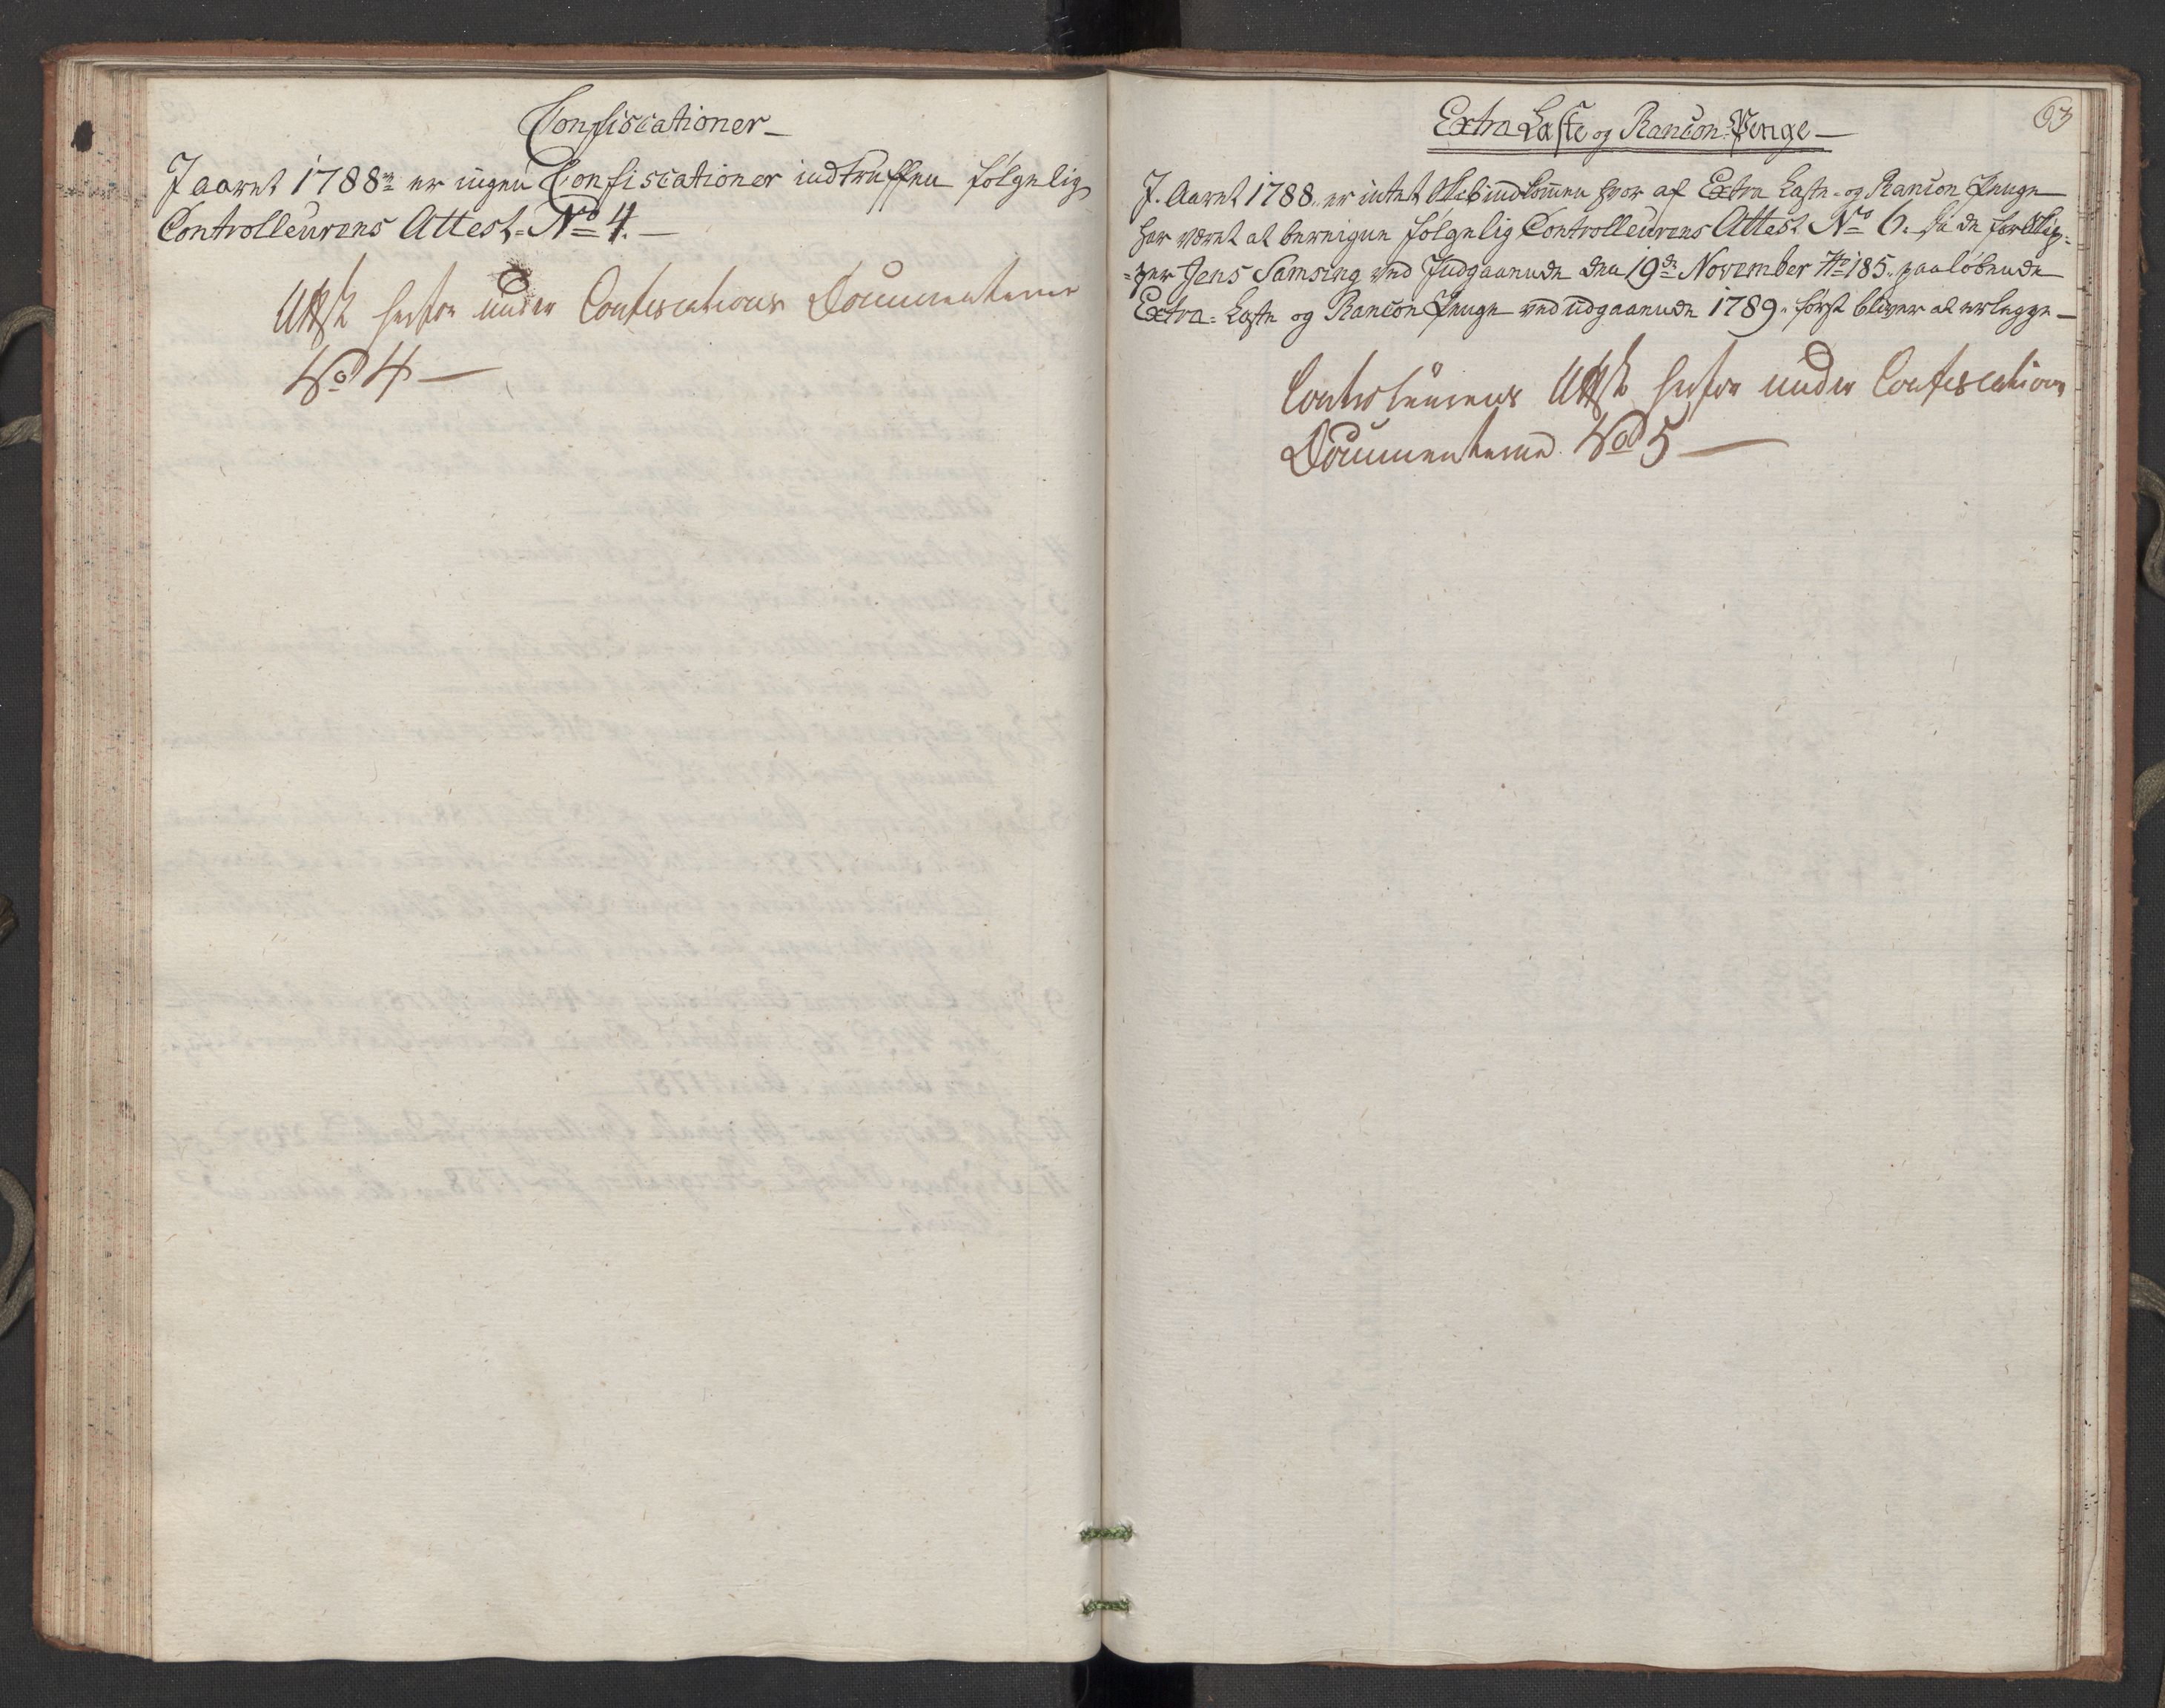 Confiscationer
I aaret 1788 er ingen Confiscationer indtruffen følgelig
Controlleurens Attest No 4.
Attest herfor under Confiscations Documenterne
No 4
63
Extra Laste og Rancon-Penge
I Aaret 1788 er intet Skib indkommen hvor af Extra Laste- og Rancon Penge
har været at beregne følgelig Controlleurens Attest No 6. da de for Skip-
-per Jens Samsing ved Indgaaende den 19de November No 185. paaløbende
Extra-Laste og Rancon Penge ved udgaaende 1789. først bliver at erlegge
Controleurens Attest herfor under Confiscations
Documenterne No 5